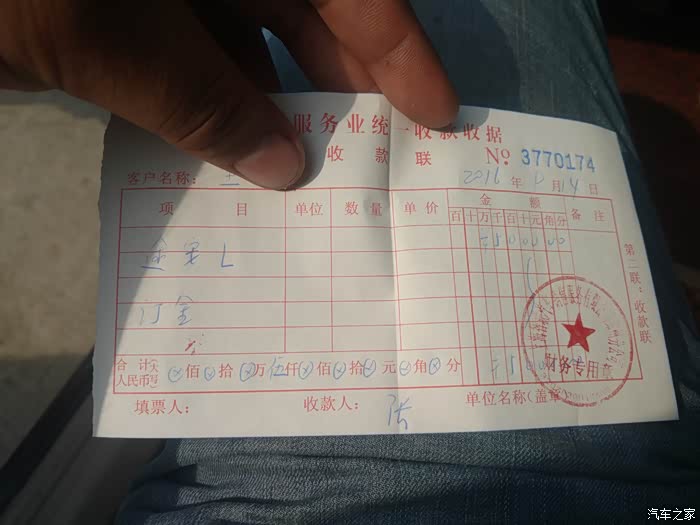 服务业统一收款收据
收款联 № 3770174
客户名称: 2016 年 月 日
项目 单位 数量 单价 金额 备注
百 十 万 千 百 十 元 角 分
途安L ¥500000
订金
合计(大写)人民币 ⊗佰⊗拾⊗万伍仟⊗佰⊗拾⊗元⊗角⊗分 ¥500000
填票人: 收款人: 张 单位名称(盖章
第二联:收款联
财务专用章
汽车之家